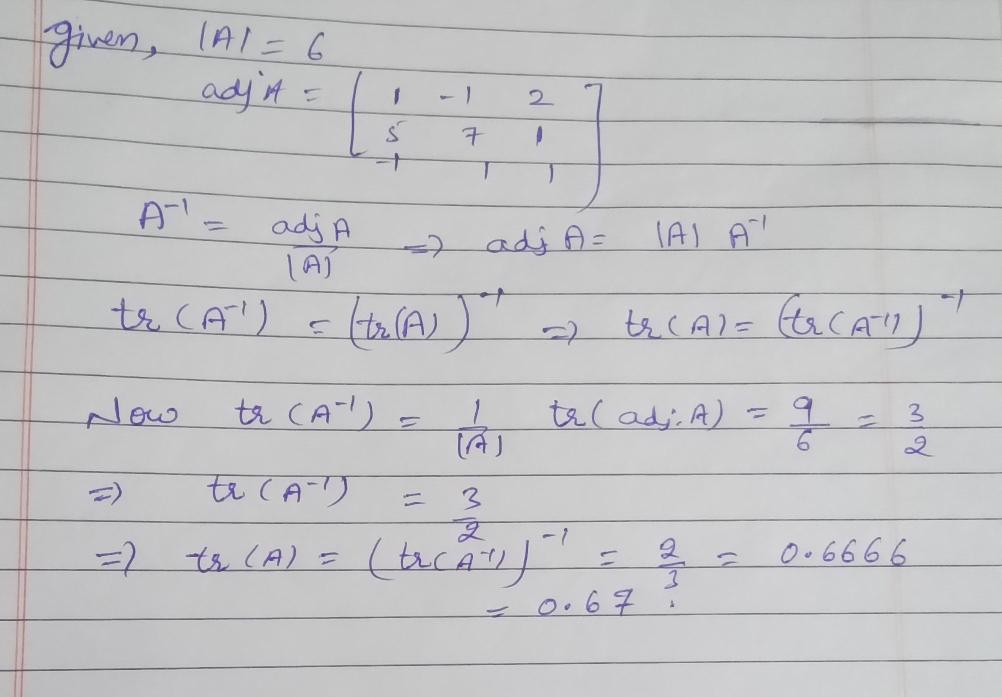 given, |A| = 6
adj A = [ 1 -1 2
5 7 1
-1 1 1 ]
A⁻¹ = adj A / |A| ⇒ adj A = |A| A⁻¹
tr (A⁻¹) = (tr(A))⁻¹ ⇒ tr(A) = (tr(A⁻¹))⁻¹
Now tr (A⁻¹) = 1/|A| tr( adj. A) = 9/6 = 3/2
⇒ tr (A⁻¹) = 3/2
⇒ tr (A) = (tr(A⁻¹))⁻¹ = 2/3 = 0.6666
= 0.67.